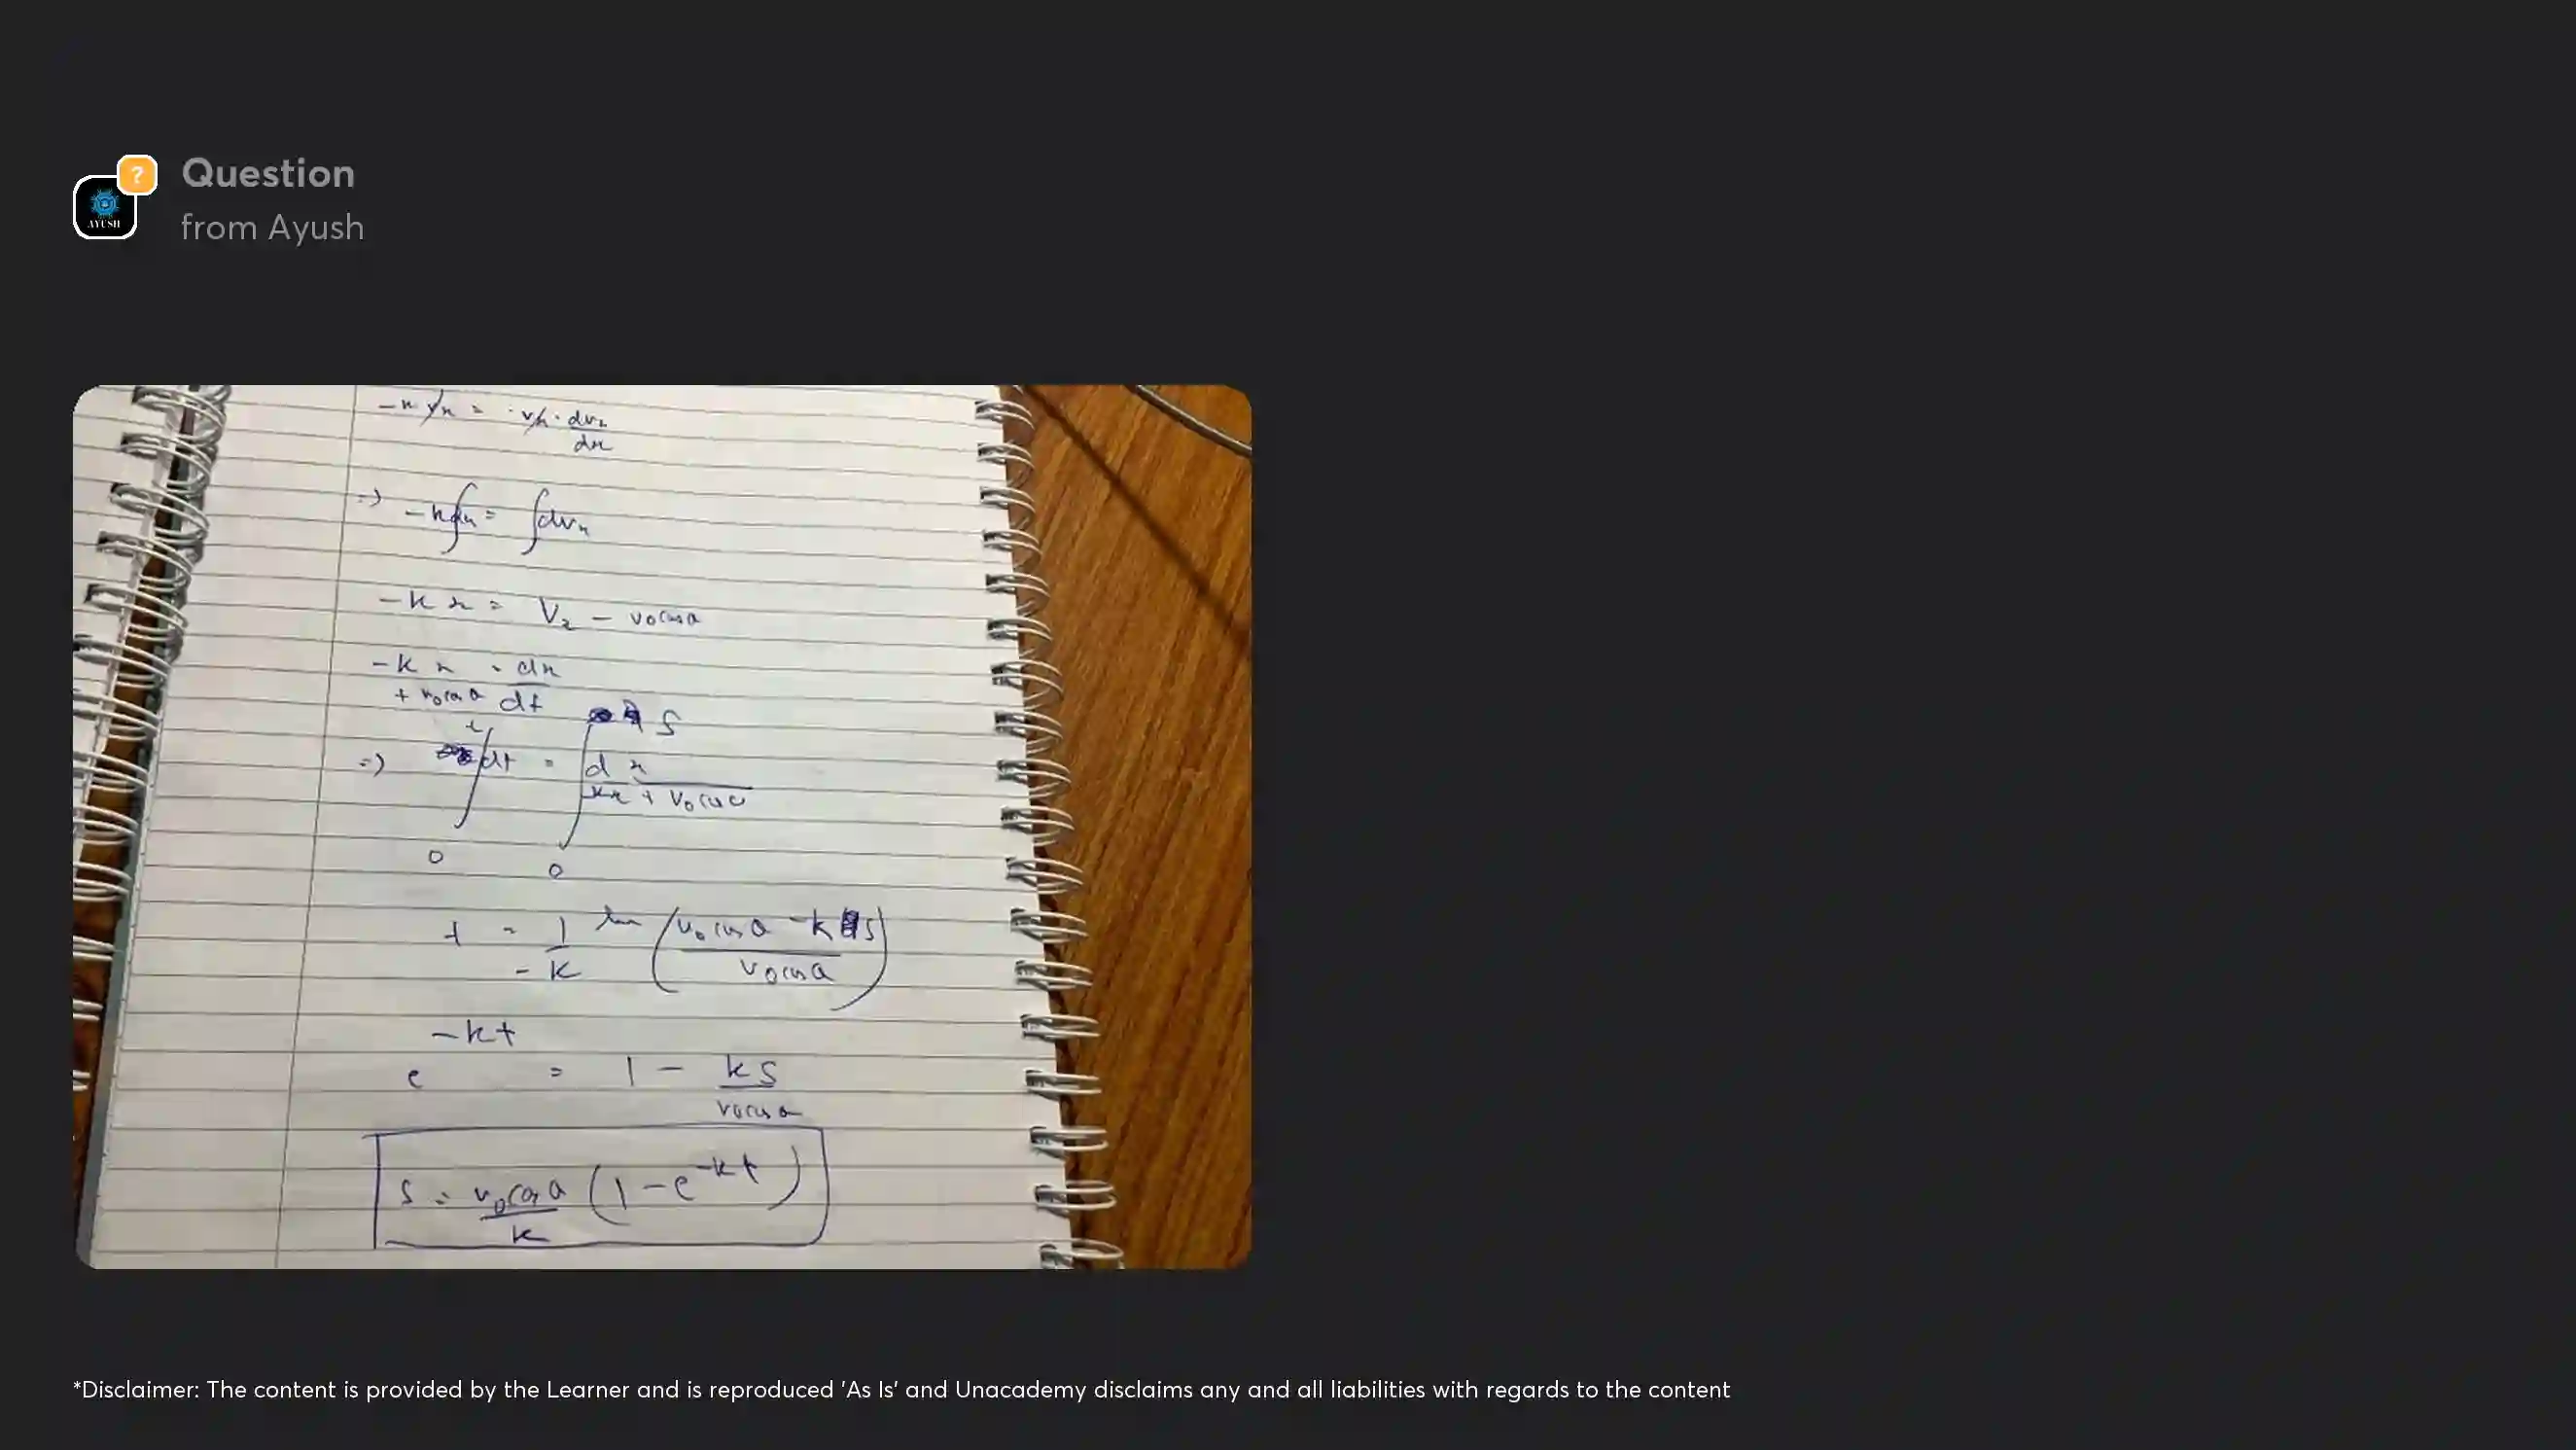 ?
AYUSH
Question
from Ayush
-k vx = vx · dvx
dx
=) -k∫dx = ∫dvx
-k x = Vx - v0 cosα
-k x = dx
+ v0 cosα dt
t S
=) ∫dt = ∫ d x
-kx + v0 cosα
0 0
t = 1 ln ( v0 cosα - k s )
- k v0 cosα
-kt
e = 1 - k s
v0 cosα
s = v0 cosα ( 1 - e^-kt )
k
*Disclaimer: The content is provided by the Learner and is reproduced 'As Is' and Unacademy disclaims any and all liabilities with regards to the content